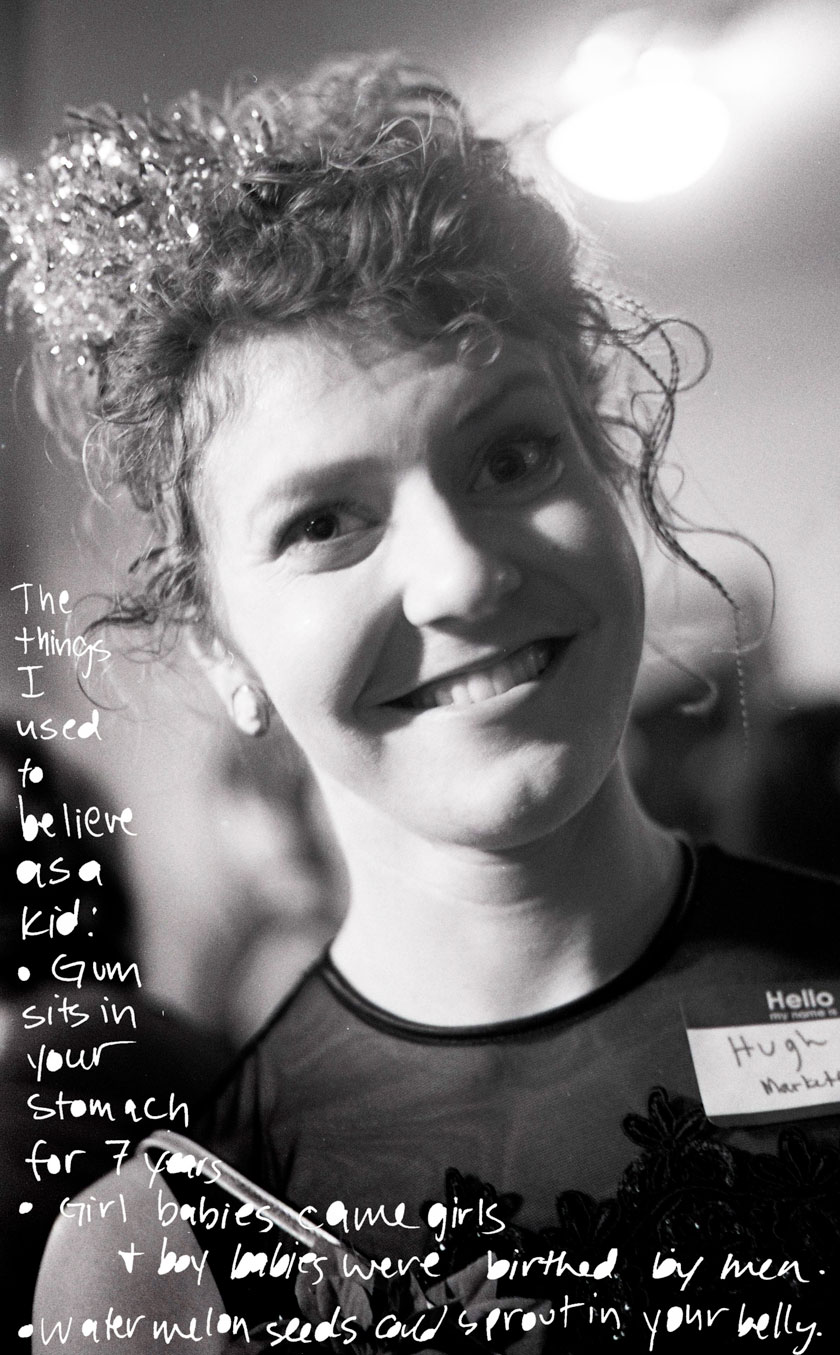 The
things
I
used
to
believe
as a
kid:
• Gum
sits in
your
stomach
for 7 years
• Girl babies came girls
+ boy babies were birthed by men.
• Watermelon seeds could sprout in your belly.
Hello
my name is
Hugh